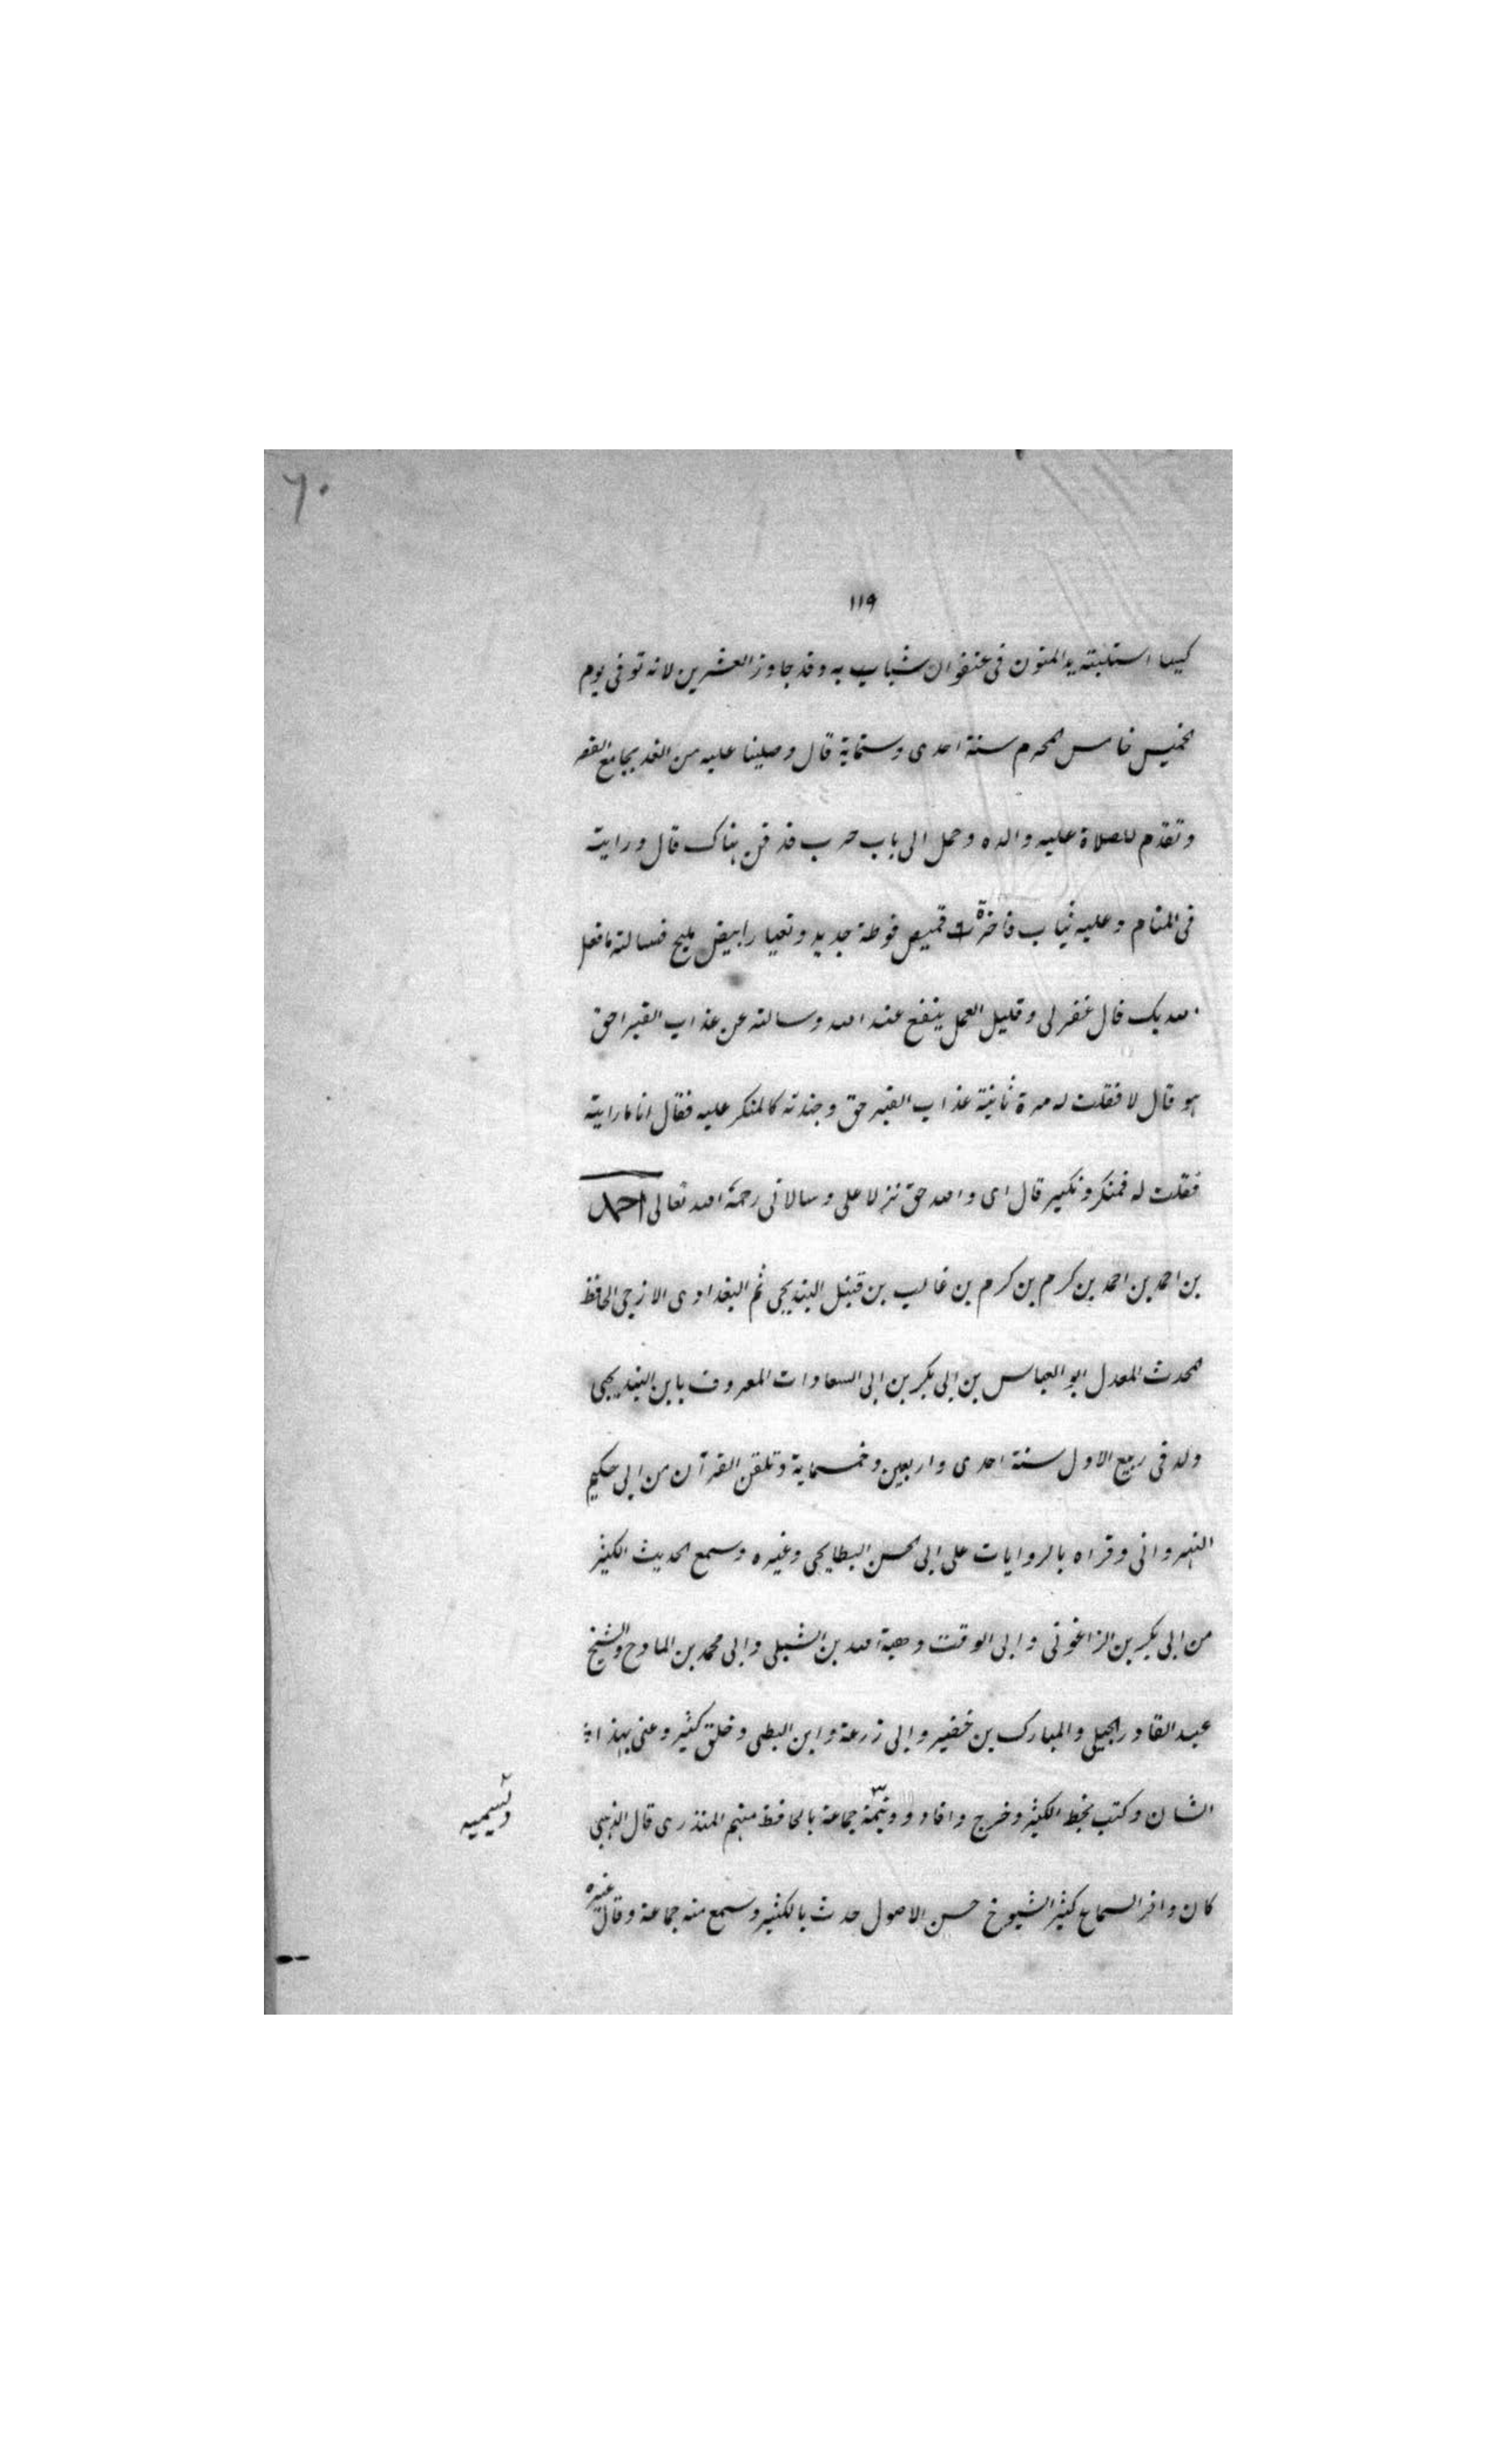 ٦٠
١١٩
كيسا استلبته يد المنون فى عنفوان شبابه وقد جاوز العشرين لانه توفى يوم
الخميس خامس المحرم سنة احدى وستماية قال وصلينا عليه من الغد بجامع القصر
وتقدم للصلاة عليه والده وحمل الى باب حرب فدفن هناك قال ورايته
فى المنام وعليه ثياب فاخرة قميص فوطة جديد وتعيار ابيض مليح فسالته ما فعل
الله بك قال غفر لى وقليل العمل ينفع عند الله وسالته عن عذاب القبر احق
هو قال لا فقلت له مرة ثانية عذاب القبر حق وجندته كالمنكر عليه فقال انا ما رايته
فقلت له فمنكر ونكير قال اى والله حق نزلا على وسالانى رحمه الله تعالى احمد
بن احمد بن احمد بن كرم بن كرم بن غالب بن قتيل البنديجى ثم البغدادى الازجى الحافظ
المحدث المعدل ابو العباس بن ابى بكر بن ابى السعادات المعروف بابن البنديجى
ولد فى ربيع الاول سنة احدى واربعين وخمسماية وتلقن القرآن من ابى حكيم
النهروانى وقراه بالروايات على ابى الحسن البطايحى وغيره وسمع الحديث الكثير
من ابى بكر بن الزاغونى وابى الوقت وهبة الله بن الشبلى وابى محمد بن المادح والشيخ
عبد القادر الجيلى والمبارك بن خضير وابى زرعة وابن البطى وخلق كثير وعنى بهذا
الشان وكتب بخط الكثير وخرج وافاد و جماعة بالحافظ منهم المنذرى قال الذهبى
وتسميه
كان وافر السماع كثير الشيوخ حسن الاصول حدث بالكثير وسمع منه جماعة وقال غيره